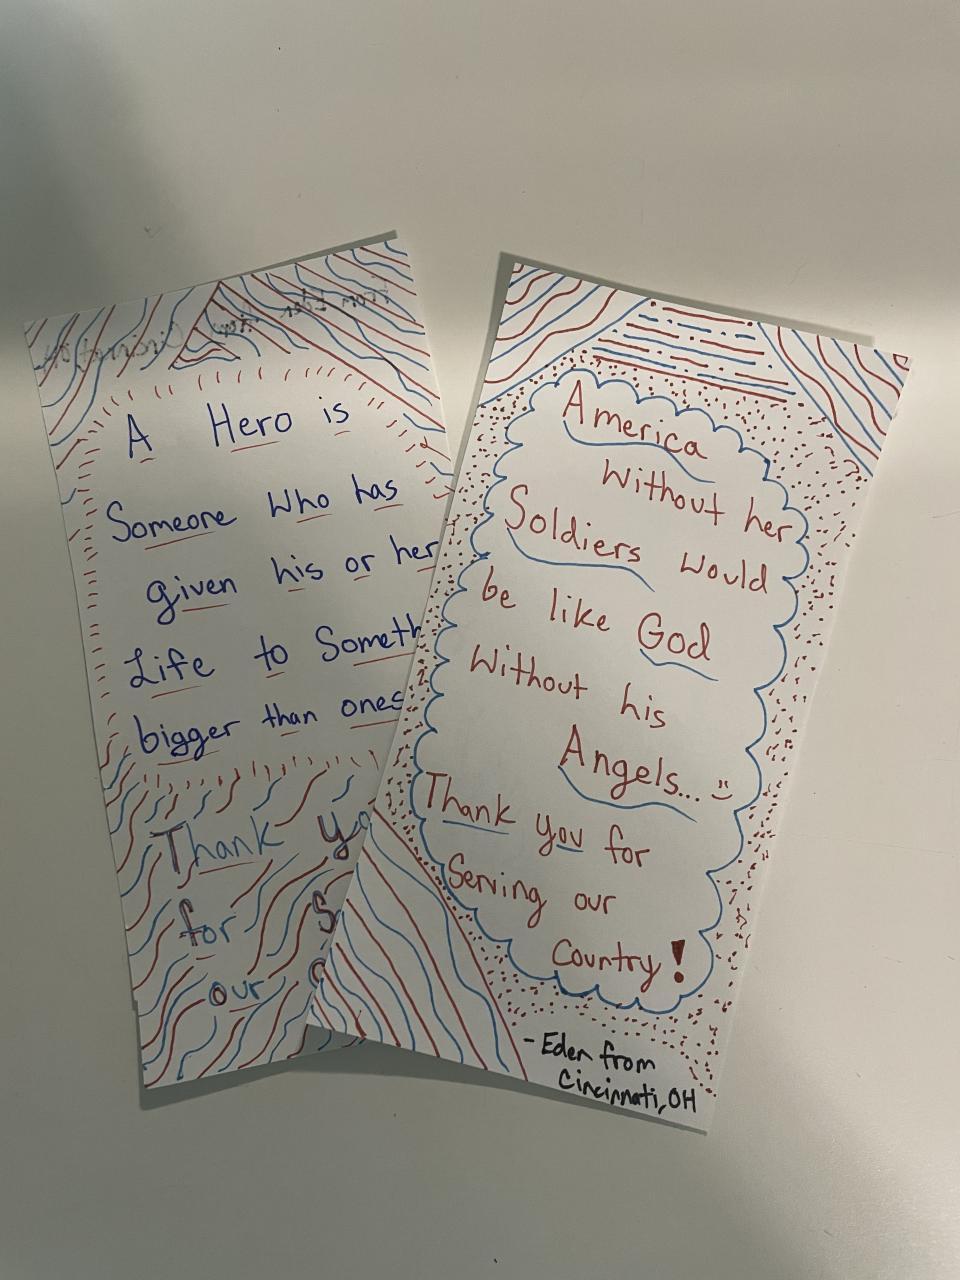 A Hero is
Someone Who has
given his or her
Life to Someth
bigger than ones
Thank yo
for S
our
America
Without her
Soldiers would
be like God
Without his
Angels... :)
Thank you for
Serving our
Country!
- Eden from
Cincinnati, OH